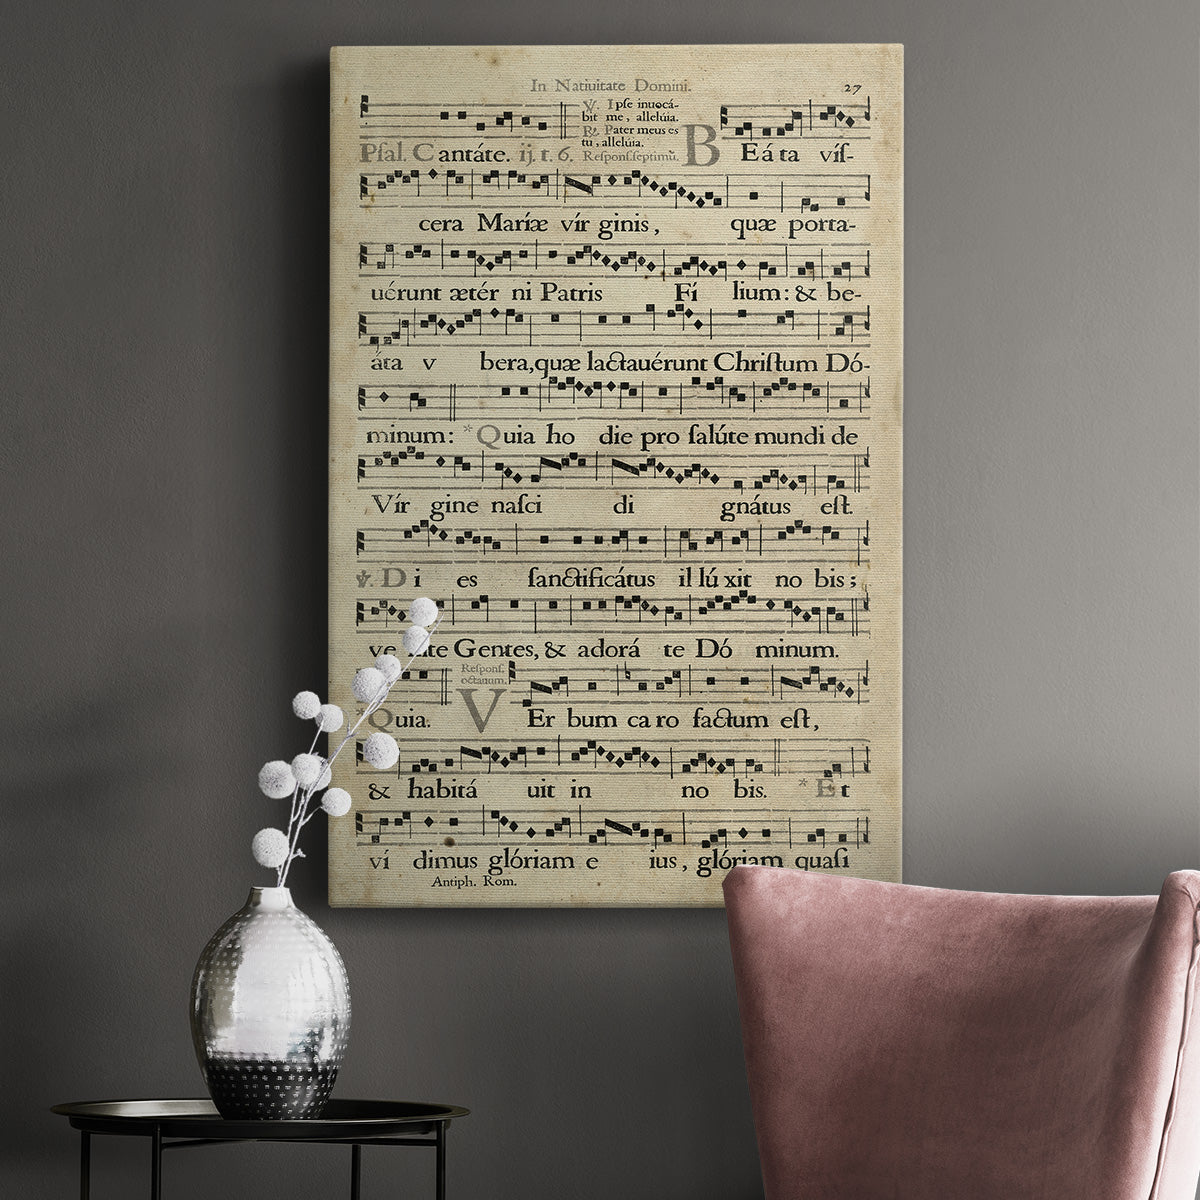 In Natiuitate Domini. 27
℣. Ipſe inuocá-
bit me, allelúia.
℟. Pater meus es
tu, allelúia.
Pſal. Cantáte. ij. t. 6. Reſponſ.ſeptimũ. BEáta víſ-
cera Maríæ vír ginis, quæ porta-
uérunt ætér ni Patris Fí lium: & be-
áta v bera, quæ lactauérunt Chriſtum Dó-
minum: * Quia ho die pro ſalúte mundi de
Vír gine naſci di gnátus eſt.
℣. Di es ſanctificátus il lú xit no bis;
ve te Gentes, & adorá te Dó minum.
Reſponſ.
octauum.
*Quia. VEr bum ca ro factum eſt,
& habitá uit in no bis. * Et
ví dimus glóriam e ius, glóriam quaſi
Antiph. Rom.